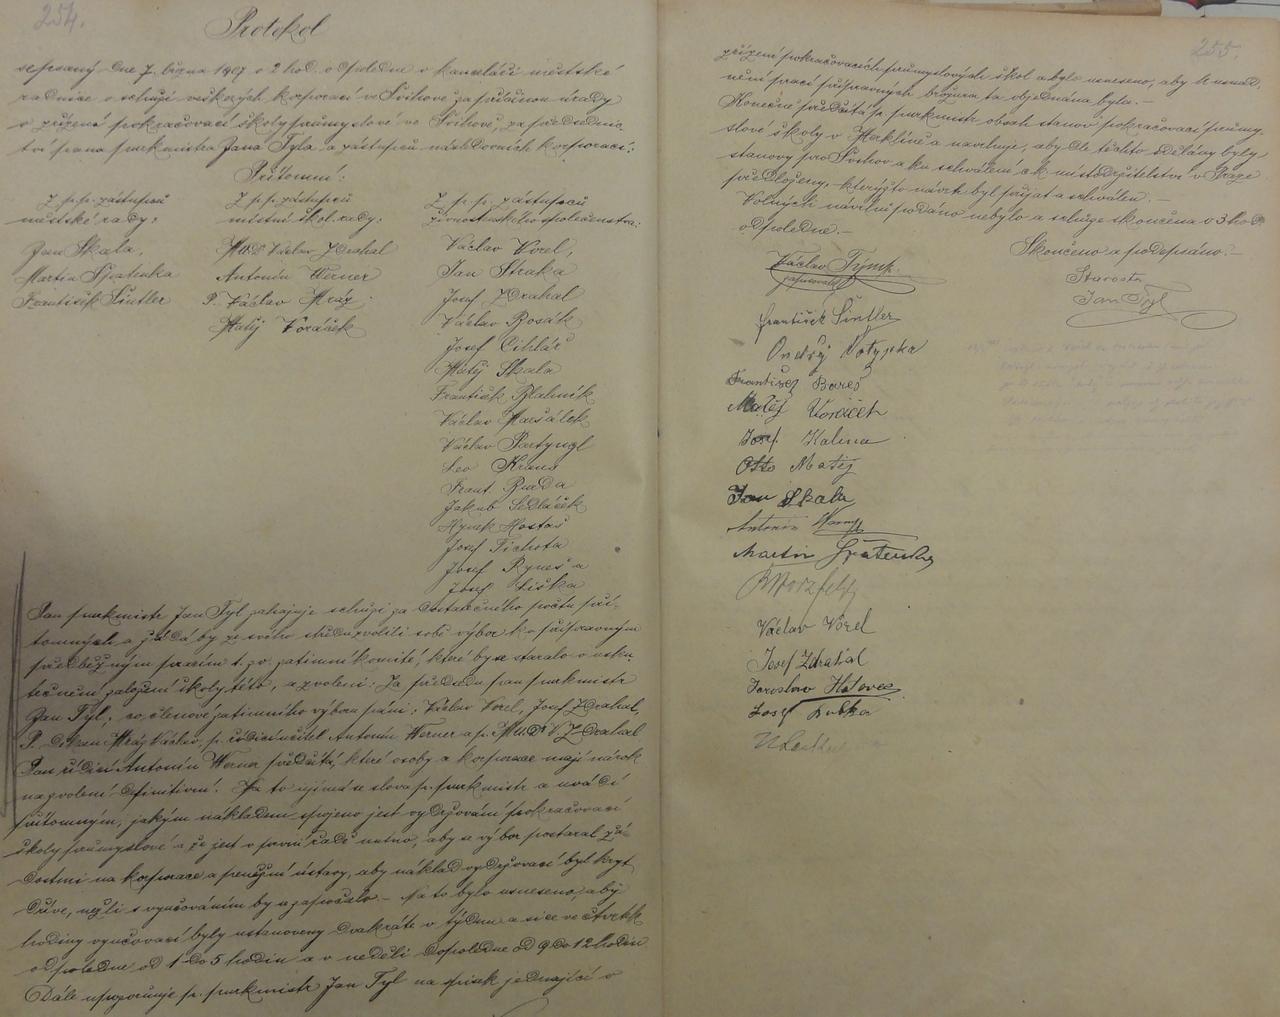 254.
Protokol
sepsaný dne 7. března 1907 o 2 hod. odpoledne v kanceláři městské
radnice o schůzi veškerých korporací ve Švihově za příčinou úrady
o zřízení pokračovací školy průmyslové ve Švihově, za předsednic-
tví pana purkmistra Jana Tyla a zástupců následovních korporací:
Přítomni:
Z p. p. zástupců
městské rady:
Jan Skala,
Martin Špatenka
František Šintler
Z p. p. zástupců
místní škol. rady:
MUDr Václav Zdrahal
Antonín Werner
P. Václav Mráz
Matěj Voráček
Z p. p. zástupců
živnostenského společenstva:
Václav Vorel,
Jan Straka
Josef Zdrahal
Václav Bosák
Josef Cihlář
Matěj Skala
František Blahník
Václav Maršálek
Václav Partyngl
Leo Kraus
Frant. Duda
Jakub Sedláček
Hynek Hostaš
Josef Tichota
Josef Ryneš a
Josef Liška
Pan purkmistr Jan Tyl zahajuje schůzi za dostatečného počtu pří-
tomných a žádá by ze svého středu zvolili sobě výbor ku přípravným
předběžným pracím t. zv. zatimní komité, které by se staralo o usku-
tečnění založení školy této, a zvoleni: Za předsedu pan purkmistr
Jan Tyl, co členové zatimního výboru páni: Václav Vorel, Josef Zdrahal,
P. Děkan Mráz Václav, p. řídící učitel Antonín Werner a p. MUDr V. Zdrahal
Pan řídící Antonín Werner předčítá, které osoby a korporace mají nárok
na zvolení definitivní. Na to ujímá se slova p. purkmistr a uvádí
přítomným, jakým nákladem spojeno jest vydržování pokračovací
školy průmyslové a že jest v první řadě nutno, aby se výbor postaral žá-
dostmi na korporace a peněžní ústavy, aby náklad vydržovací byl kryt
dříve, nežli s vyučováním by se započalo. – Na to bylo usneseno, aby
hodiny vyučovací byly ustanoveny dvakráte v týdnu a sice ve čtvrtek
odpoledne od 1 do 5 hodin a v neděli dopoledne od 9 do 12 hodin
Dále upozorňuje p. purkmistr Jan Tyl na spisek jednající o
255.
zřízení pokračovacích průmyslových škol a bylo usneseno, aby k usnad-
nění prací přípravných brožura ta objednána byla. –
Konečně předčítá p. purkmistr obsah stanov pokračovací průmy-
slové školy v Merklíně a navrhuje, aby dle těchto sdělány byly
stanovy pro Švihov a ku schválení ck místodržitelství v Praze
předloženy, kterýžto návrh byl přijat a schválen. –
Volných návrhů podáno nebylo a schůze skončena o 3 hod.
odpoledne. –
Skončeno a podepsáno. –
Starosta
Jan Tyl
Václav
zapisovatel
František Šintler
Ondřej Votypka
František Bareš
Matěj Voráček
Josef Kalina
Otto Matěj
Jan Skala
Antonín
Martin Špatenka
Václav Vorel
Josef Zdrahal
Jaroslav
Josef